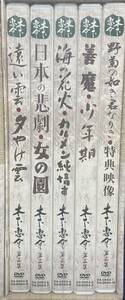 遠い雲・夕やけ雲
木下惠介
DVD
日本の悲劇・女の園
木下惠介
DVD
海の花火・カルメン純情す
木下惠介
DVD
善魔・少年期
木下惠介
DVD
野菊の如き君なりき・特典映像
木下惠介
DVD